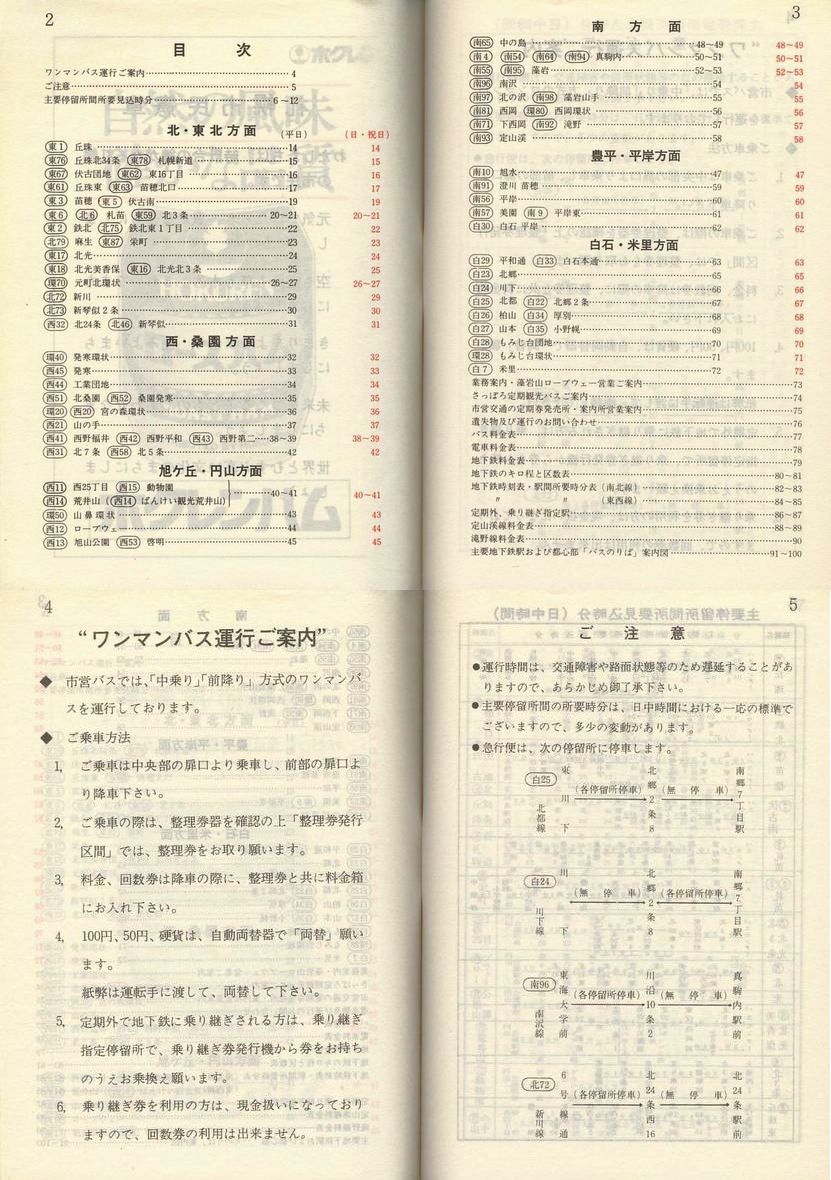 2
目　次
ワンマンバス運行ご案内……4
ご注意……5
主要停留所間所要見込時分……6～12
北・東北方面 (平日) (日・祝日)
東1 丘珠……14 14
東76 丘珠北34条 東78 札幌新道……15 15
東67 伏古団地 東62 東16丁目……16 16
東61 丘珠東 東63 苗穂北口……17 17
東3 苗穂 東5 伏古南……19 19
東6 北6 札苗 東59 北3条……20～21 20～21
東2 鉄北 北75 鉄北東1丁目……22 22
北79 麻生 東87 栄町……23 23
東17 北光……24 24
東18 北光美香保 東16 北光北3条……25 25
環70 元町北環状……26～27 26～27
北72 新川……29 29
北73 新琴似2条……30 30
西32 北24条 北46 新琴似……31 31
西・桑園方面
環40 発寒環状……32 32
西45 発寒……33 33
西44 工業団地……34 34
西51 北桑園 西52 桑園発寒……35 35
環20 西20 宮の森環状……36 36
西21 山の手……37 37
西41 西野福井 西42 西野平和 西43 西野第二……38～39 38～39
西31 北7条 西58 北5条……42 42
旭ケ丘・円山方面
西11 西25丁目 西15 動物園
西14 荒井山 (西14 ばんけい観光荒井山)……40～41 40～41
環50 山鼻環状……43 43
西12 ロープウェー……44 44
西13 旭山公園 西53 啓明……45 45
3
南方面
南65 中の島……48～49 48～49
南4 南54 南64 南94 真駒内……50～51 50～51
南55 南95 藻岩……52～53 52～53
南96 南沢……54 54
南97 北の沢 南98 藻岩山手……55 55
南81 西岡 環80 西岡環状……56 56
南71 下西岡 南92 滝野……57 57
南93 定山渓……58 58
豊平・平岸方面
南10 旭水……47 47
南91 澄川 苗穂……59 59
南56 平岸……60 60
南57 美園 南9 平岸東……61 61
白30 白石 平岸……62 62
白石・米里方面
白29 平和通 白33 白石本通……63 63
白23 北郷……65 65
白24 川下……66 66
白25 北都 白22 北郷2条……67 67
白26 柏山 白34 厚別……68 68
白27 山本 白35 小野幌……69 69
白28 もみじ台団地……70 70
環28 もみじ台環状……71 71
白7 米里……72 72
業務案内・藻岩山ロープウェー営業ご案内……73
さっぽろ定期観光バスご案内……74
市営交通の定期券発売所・案内所営業案内……75
遺失物及び運行のお問い合わせ……76
バス料金表……77
電車料金表……78
地下鉄料金表……79
地下鉄のキロ程と区数表……80～81
地下鉄時刻表・駅間所要時分表 (南北線)……82～83
〃　〃 (東西線)……84～85
定期外、乗り継ぎ指定駅……86～87
定山渓線料金表……88～89
滝野線料金表……90
主要地下鉄駅および都心部「バスのりば」案内図……91～100
4
“ワンマンバス運行ご案内”
◆ 市営バスでは、「中乗り」「前降り」方式のワンマンバ
スを運行しております。
◆ ご乗車方法
1, ご乗車は中央部の扉口より乗車し、前部の扉口よ
り降車下さい。
2, ご乗車の際は、整理券器を確認の上「整理券発行
区間」では、整理券をお取り願います。
3, 料金、回数券は降車の際に、整理券と共に料金箱
にお入れ下さい。
4, 100円、50円、硬貨は、自動両替器で「両替」願い
ます。
紙弊は運転手に渡して、両替して下さい。
5, 定期外で地下鉄に乗り継ぎされる方は、乗り継ぎ
指定停留所で、乗り継ぎ券発行機から券をお持ち
のうえお乗換え願います。
6, 乗り継ぎ券を利用の方は、現金扱いになっており
ますので、回数券の利用は出来ません。
5
ご注意
●運行時間は、交通障害や路面状態等のため遅延することがあ
りますので、あらかじめ御了承下さい。
●主要停留所間の所要時分は、日中時間における一応の標準で
ございますので、多少の変動があります。
●急行便は、次の停留所に停車します。
白25 北都線 東川下 (各停留所停車) 北郷2条8 (無停車) 南郷7丁目駅
白24 川下線 川下 (無停車) 北郷2条8 (各停留所停車) 南郷7丁目駅
南96 南沢線 東海大学前 (各停留所停車) 川沿10条2 (無停車) 真駒内駅前
北72 新川線 6号線通 (各停留所停車) 北24条西16 (無停車) 北24条駅前